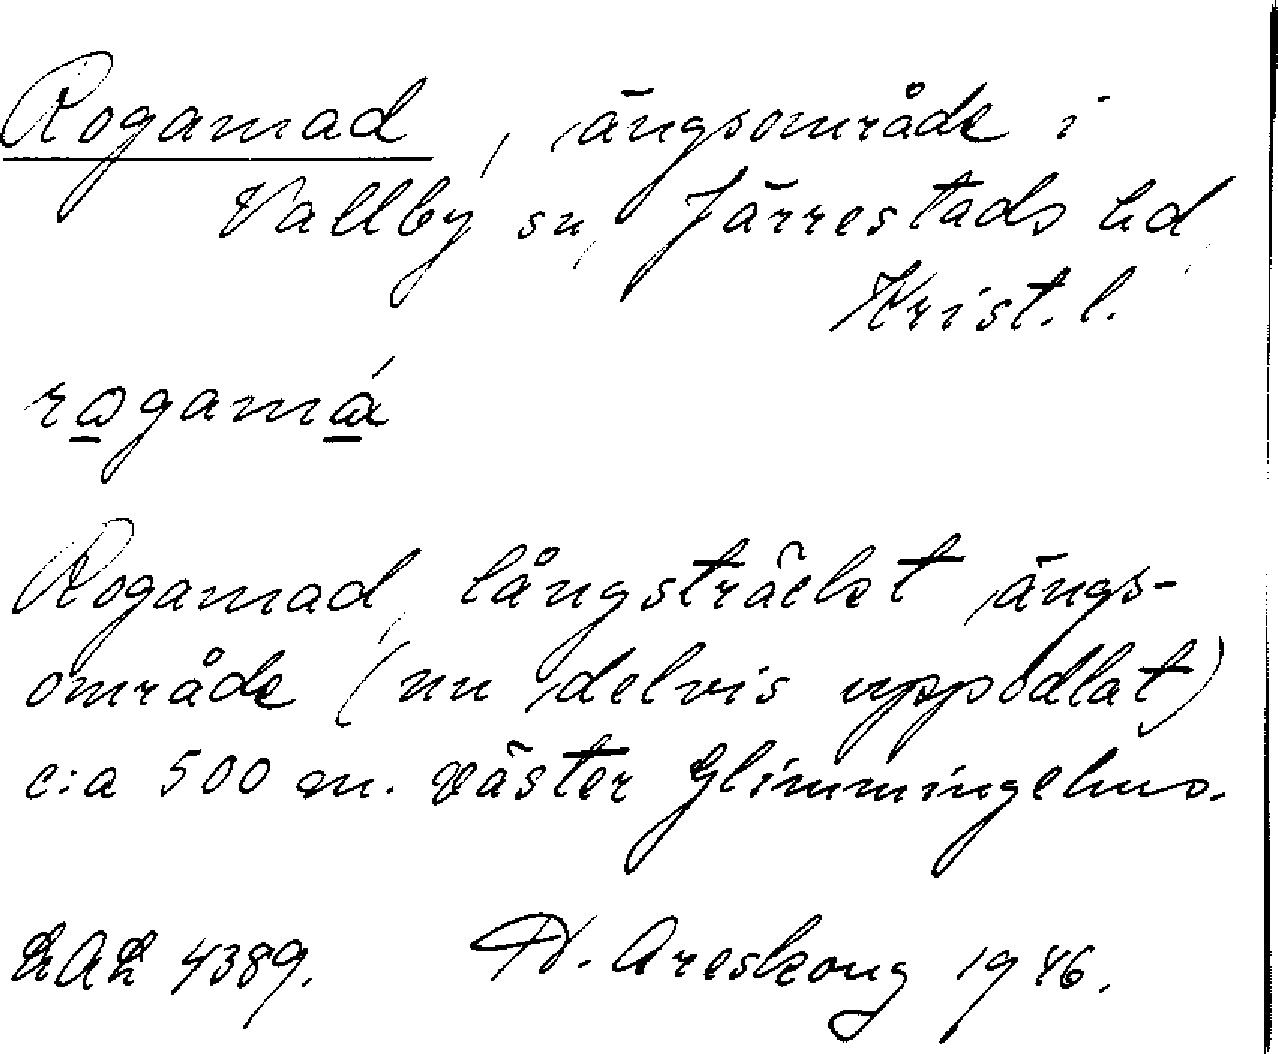 Rogamad, ängsområde i
Vallby sn, Järrestads hd,
Krist. l.
rogamá
Rogamad, långsträckt ängs-
område (nu delvis uppodlat)
c:a 500 m. väster Glimmingehus.
LAL 4389. N. Areskoug 1946.